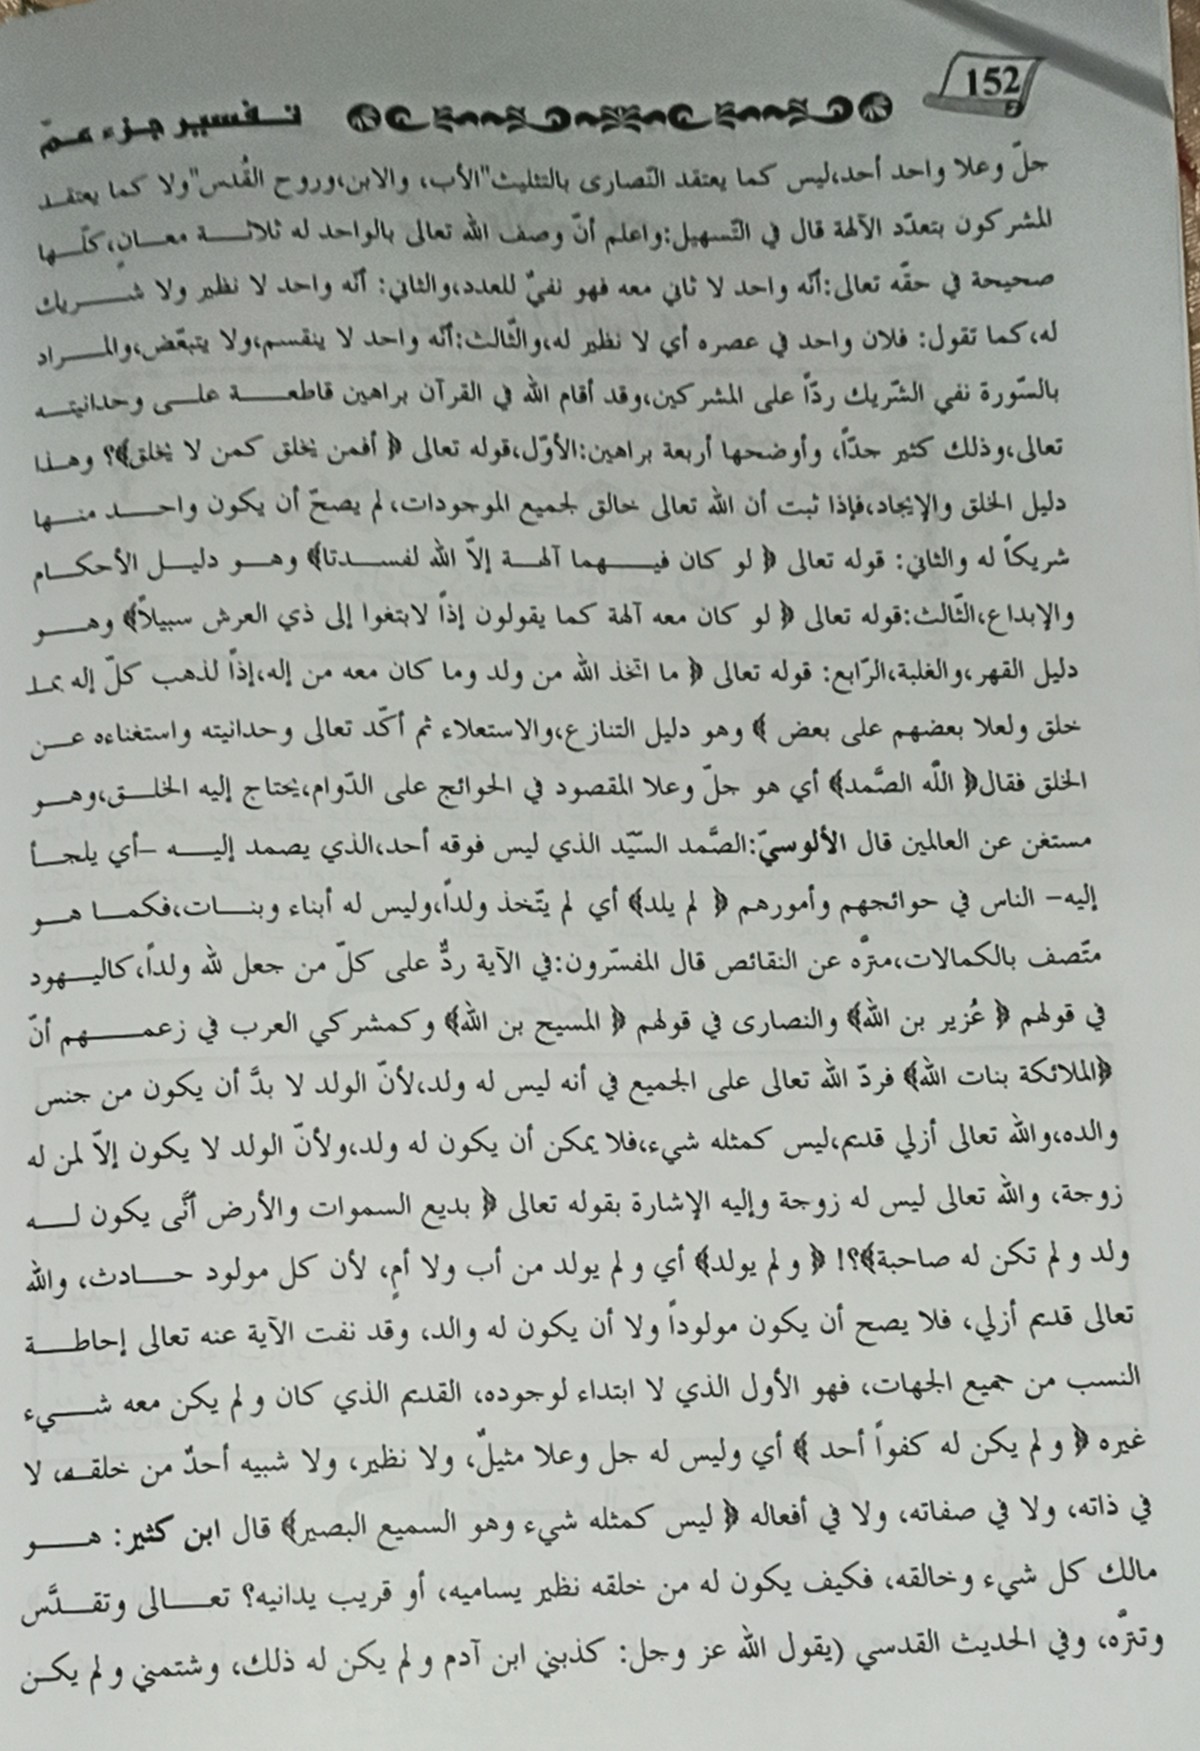 152
تفسير جزء عمّ
جلّ وعلا واحد أحد،ليس كما يعتقد النّصارى بالتثليث"الأب، والابن،وروح القُدس"ولا كما يعتقد
المشركون بتعدّد الآلهة قال في التّسهيل:واعلم أنّ وصف الله تعالى بالواحد له ثلاثة معانٍ،كلّها
صحيحة في حقّه تعالى:أنّه واحد لا ثاني معه فهو نفيٌ للعدد،والثاني: أنّه واحد لا نظير ولا شريك
له،كما تقول: فلان واحد في عصره أي لا نظير له،والثّالث:أنّه واحد لا ينقسم،ولا يتبعّض،والمراد
بالسّورة نفي الشّريك ردّاً على المشركين،وقد أقام الله في القرآن براهين قاطعة على وحدانيته
تعالى،وذلك كثير جدّاً، وأوضحها أربعة براهين:الأوّل،قوله تعالى ﴿ أفمن يخلق كمن لا يخلق﴾؟ وهذا
دليل الخلق والإيجاد،فإذا ثبت أن الله تعالى خالق لجميع الموجودات، لم يصحّ أن يكون واحد منها
شريكاً له والثاني: قوله تعالى ﴿ لو كان فيهما آلهة إلاّ الله لفسدتا﴾ وهو دليل الأحكام
والإبداع،الثّالث:قوله تعالى ﴿ لو كان معه آلهة كما يقولون إذاً لابتغوا إلى ذي العرش سبيلاً﴾ وهو
دليل القهر،والغلبة،الرّابع: قوله تعالى ﴿ ما اتّخذ الله من ولد وما كان معه من إله،إذاً لذهب كلّ إله بما
خلق ولعلا بعضهم على بعض ﴾ وهو دليل التنازع،والاستعلاء ثم أكّد تعالى وحدانيته واستغناءه عن
الخلق فقال﴿ اللّه الصَّمد﴾ أي هو جلّ وعلا المقصود في الحوائج على الدّوام،يحتاج إليه الخلق،وهو
مستغن عن العالمين قال الألوسيّ:الصَّمد السّيّد الذي ليس فوقه أحد،الذي يصمد إليه –أي يلجأ
إليه– الناس في حوائجهم وأمورهم ﴿ لم يلد﴾ أي لم يتّخذ ولداً،وليس له أبناء وبنات،فكما هو
متّصف بالكمالات،منزّه عن النقائص قال المفسّرون:في الآية ردٌّ على كلّ من جعل لله ولداً،كاليهود
في قولهم ﴿ عُزير بن الله﴾ والنصارى في قولهم ﴿ المسيح بن الله﴾ وكمشركي العرب في زعمهم أنّ
﴿الملائكة بنات الله﴾ فردّ الله تعالى على الجميع في أنه ليس له ولد،لأنّ الولد لا بدَّ أن يكون من جنس
والده،والله تعالى أزلي قديم،ليس كمثله شيء،فلا يمكن أن يكون له ولد،ولأنّ الولد لا يكون إلاّ لمن له
زوجة، والله تعالى ليس له زوجة وإليه الإشارة بقوله تعالى ﴿ بديع السموات والأرض أنَّى يكون له
ولد و لم تكن له صاحبة﴾؟! ﴿ و لم يولد﴾ أي و لم يولد من أب ولا أمٍ، لأن كل مولود حادث، والله
تعالى قديم أزلي، فلا يصح أن يكون مولوداً ولا أن يكون له والد، وقد نفت الآية عنه تعالى إحاطة
النسب من جميع الجهات، فهو الأول الذي لا ابتداء لوجوده، القديم الذي كان و لم يكن معه شيء
غيره ﴿ و لم يكن له كفواً أحد ﴾ أي وليس له جل وعلا مثيلٌ، ولا نظير، ولا شبيه أحدٌ من خلقه، لا
في ذاته، ولا في صفاته، ولا في أفعاله ﴿ ليس كمثله شيء وهو السميع البصير﴾ قال ابن كثير: هو
مالك كل شيء وخالقه، فكيف يكون له من خلقه نظير يساميه، أو قريب يدانيه؟ تعالى وتقدَّس
وتنزَّه، وفي الحديث القدسي (يقول الله عز وجل: كذبني ابن آدم و لم يكن له ذلك، وشتمني و لم يكن